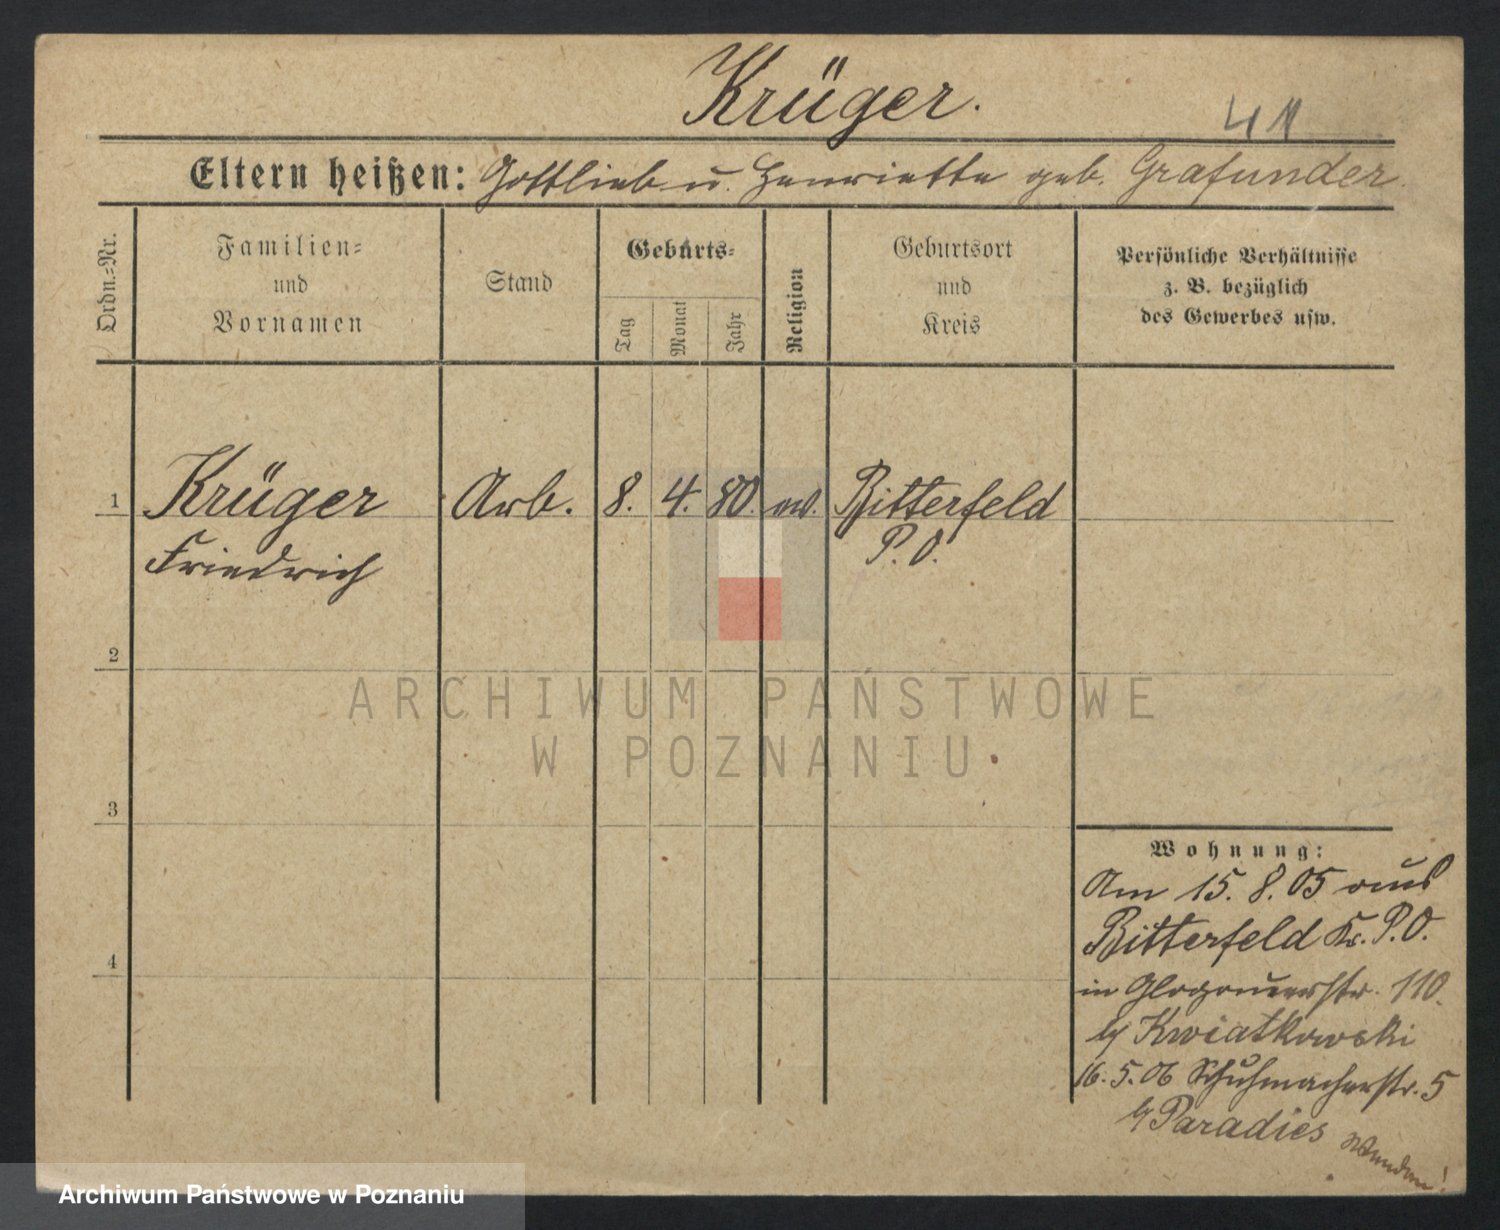 Krüger.
41
Eltern heißen: Gottlieb u. Henriette geb. Grafunder.
Ordn.-Nr.
Familien-
und
Vornamen
Stand
Geburts-
Tag
Monat
Jahr
Religion
Geburtsort
und
Kreis
Persönliche Verhältnisse
z. B. bezüglich
des Gewerbes usw.
1 Krüger Arb. 8. 4. 80. ev. Bitterfeld
Friedrich P. O.
2
3
4
Wohnung:
Am 15. 8. 05 aus
Bitterfeld Kr. P. O.
in Glogauerstr. 110.
b/ Kwiatkowski
16. 5. 06 Schuhmacherstr. 5
b/ Paradies
Wenden!
ARCHIWUM PAŃSTWOWE
W POZNANIU
Archiwum Państwowe w Poznaniu